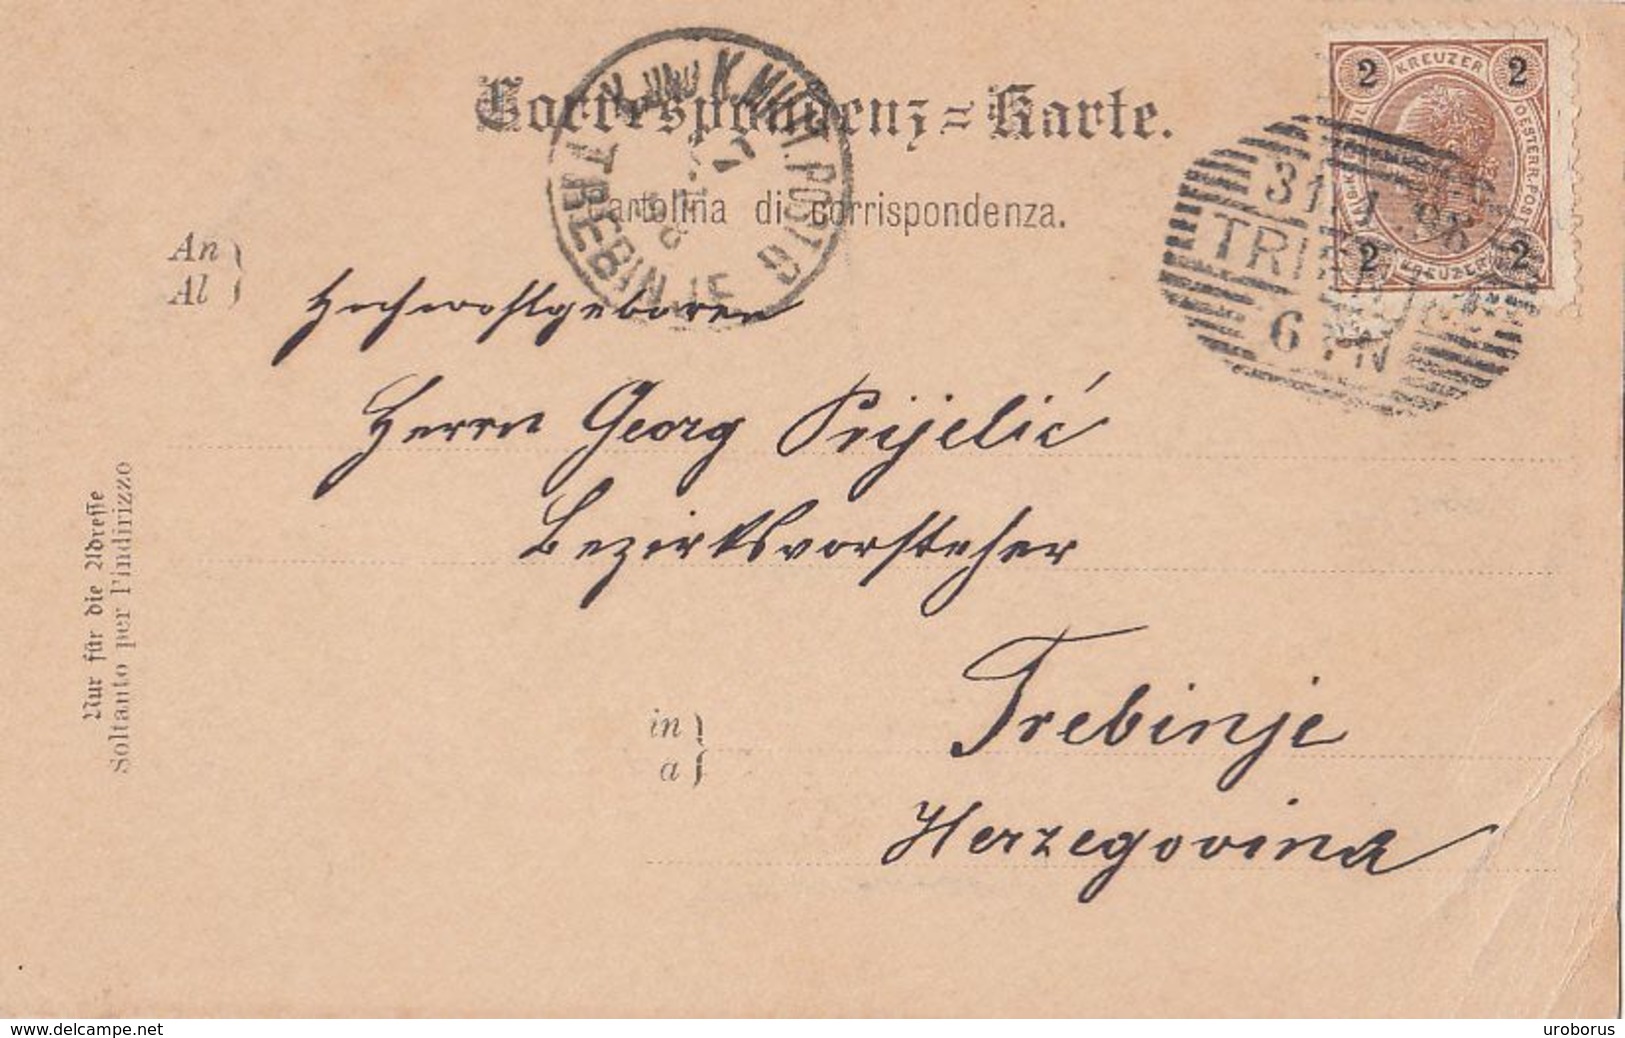 Correspondenz=Karte.
Cartolina di corrispondenza.
K. UND K. MILIT. POST
TREBINJE
2 KREUZER 2
OESTERR. POST
2 KREUZER 2
31.
6
An
Al
Hochwohlgeboren
Herrn Georg Prijelić
Bezirksvorsteher
in
a
Trebinje
Herzegovina
Nur für die Adresse
Soltanto per l'indirizzo
www.delcampe.net
uroborus